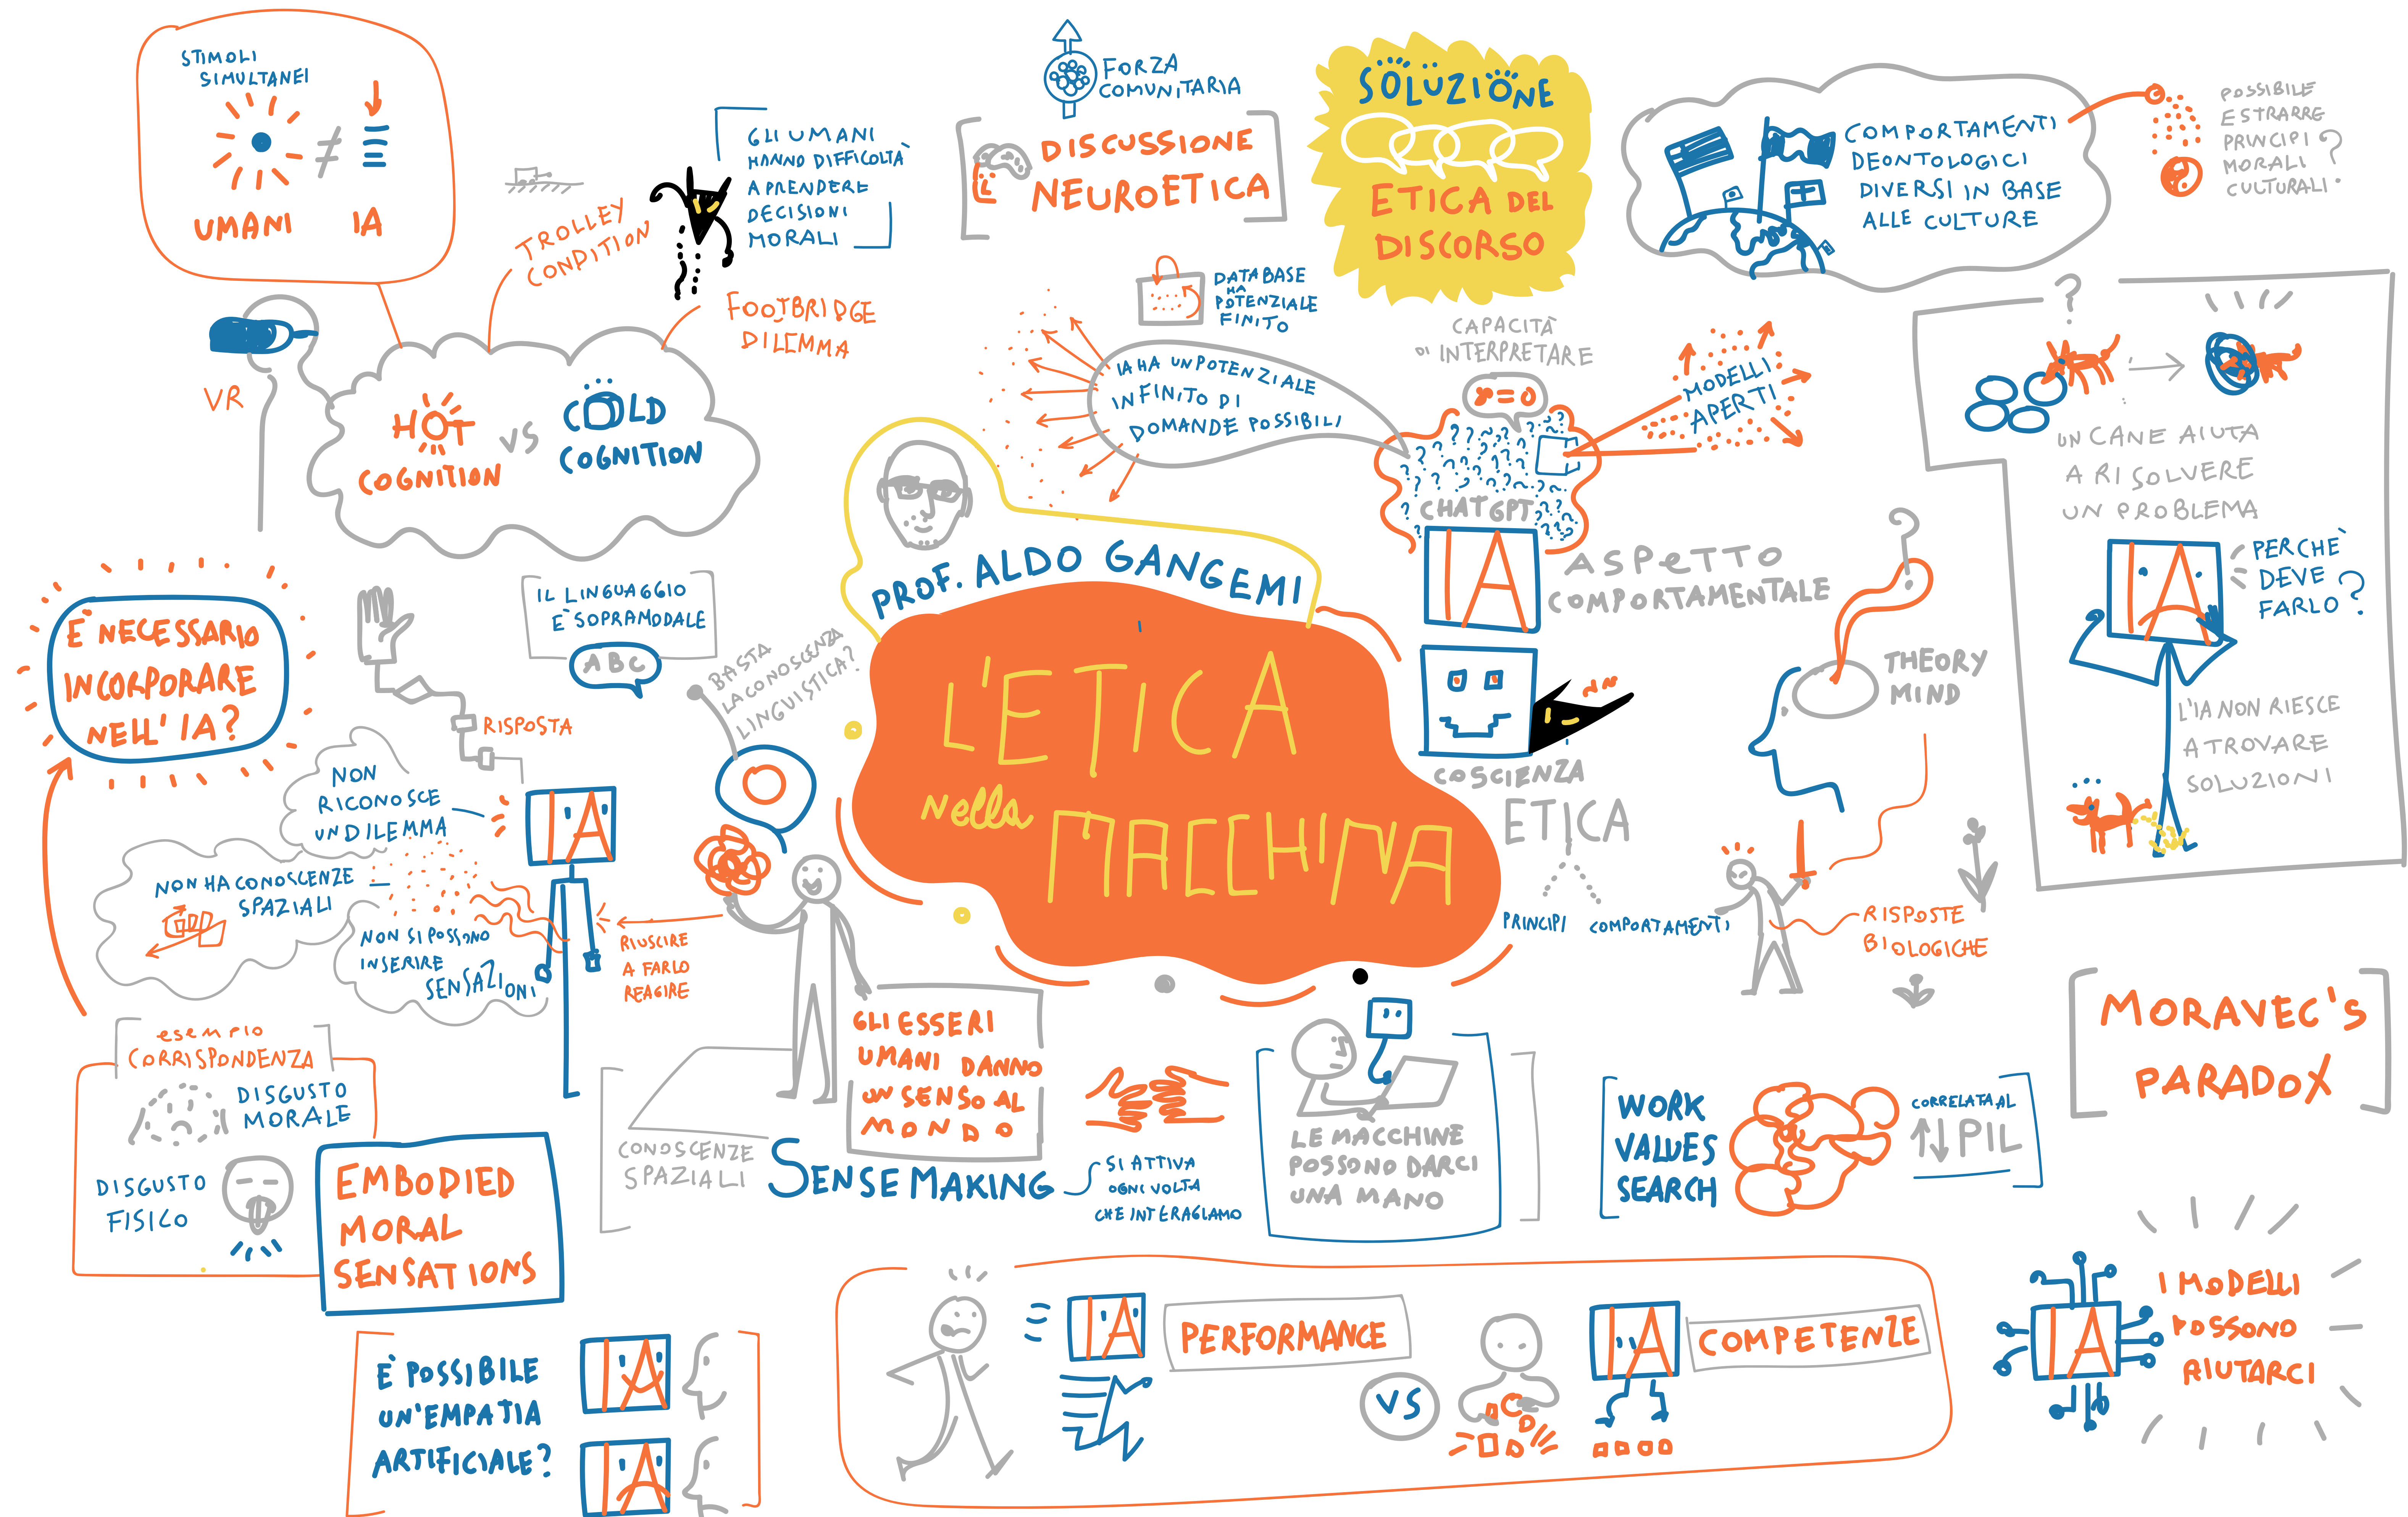 STIMOLI
SIMULTANEI
≠
UMANI
IA
VR
TROLLEY
CONDITION
GLI UMANI
HANNO DIFFICOLTÀ
A PRENDERE
DECISIONI
MORALI
FOOTBRIDGE
DILEMMA
HOT
COGNITION
VS
COLD
COGNITION
FORZA
COMUNITARIA
DISCUSSIONE
NEUROETICA
SOLUZIONE
ETICA DEL
DISCORSO
COMPORTAMENTI
DEONTOLOGICI
DIVERSI IN BASE
ALLE CULTURE
POSSIBILE
ESTRARRE
PRINCIPI
MORALI
CULTURALI?
DATABASE
HA
POTENZIALE
FINITO
IA HA UN POTENZIALE
INFINITO DI
DOMANDE POSSIBILI
CAPACITÀ
DI INTERPRETARE
r=0
MODELLI
APERTI
CHATGPT
IA
ASPETTO
COMPORTAMENTALE
?
UN CANE AIUTA
A RISOLVERE
UN PROBLEMA
IA
PERCHÈ
DEVE
FARLO?
L'IA NON RIESCE
A TROVARE
SOLUZIONI
PROF. ALDO GANGEMI
L'ETICA
nella
MACCHINA
COSCIENZA
ETICA
PRINCIPI
COMPORTAMENTI
THEORY
MIND
RISPOSTE
BIOLOGICHE
È NECESSARIO
INCORPORARE
NELL' IA?
IL LINGUAGGIO
È SOPRAMODALE
ABC
BASTA
LA CONOSCENZA
LINGUISTICA?
RISPOSTA
NON
RICONOSCE
UN DILEMMA
IA
NON HA CONOSCENZE
SPAZIALI
NON SI POSSONO
INSERIRE
SENSAZIONI
RIUSCIRE
A FARLO
REAGIRE
esempio
CORRISPONDENZA
DISGUSTO
MORALE
DISGUSTO
FISICO
EMBODIED
MORAL
SENSATIONS
CONOSCENZE
SPAZIALI
GLI ESSERI
UMANI DANNO
UN SENSO AL
MONDO
SENSEMAKING
SI ATTIVA
OGNI VOLTA
CHE INTERAGIAMO
LE MACCHINE
POSSONO DARCI
UNA MANO
WORK
VALUES
SEARCH
CORRELATA AL
PIL
MORAVEC'S
PARADOX
È POSSIBILE
UN'EMPATIA
ARTIFICIALE?
IA
IA
IA
PERFORMANCE
VS
IA
COMPETENZE
IA
I MODELLI
POSSONO
AIUTARCI